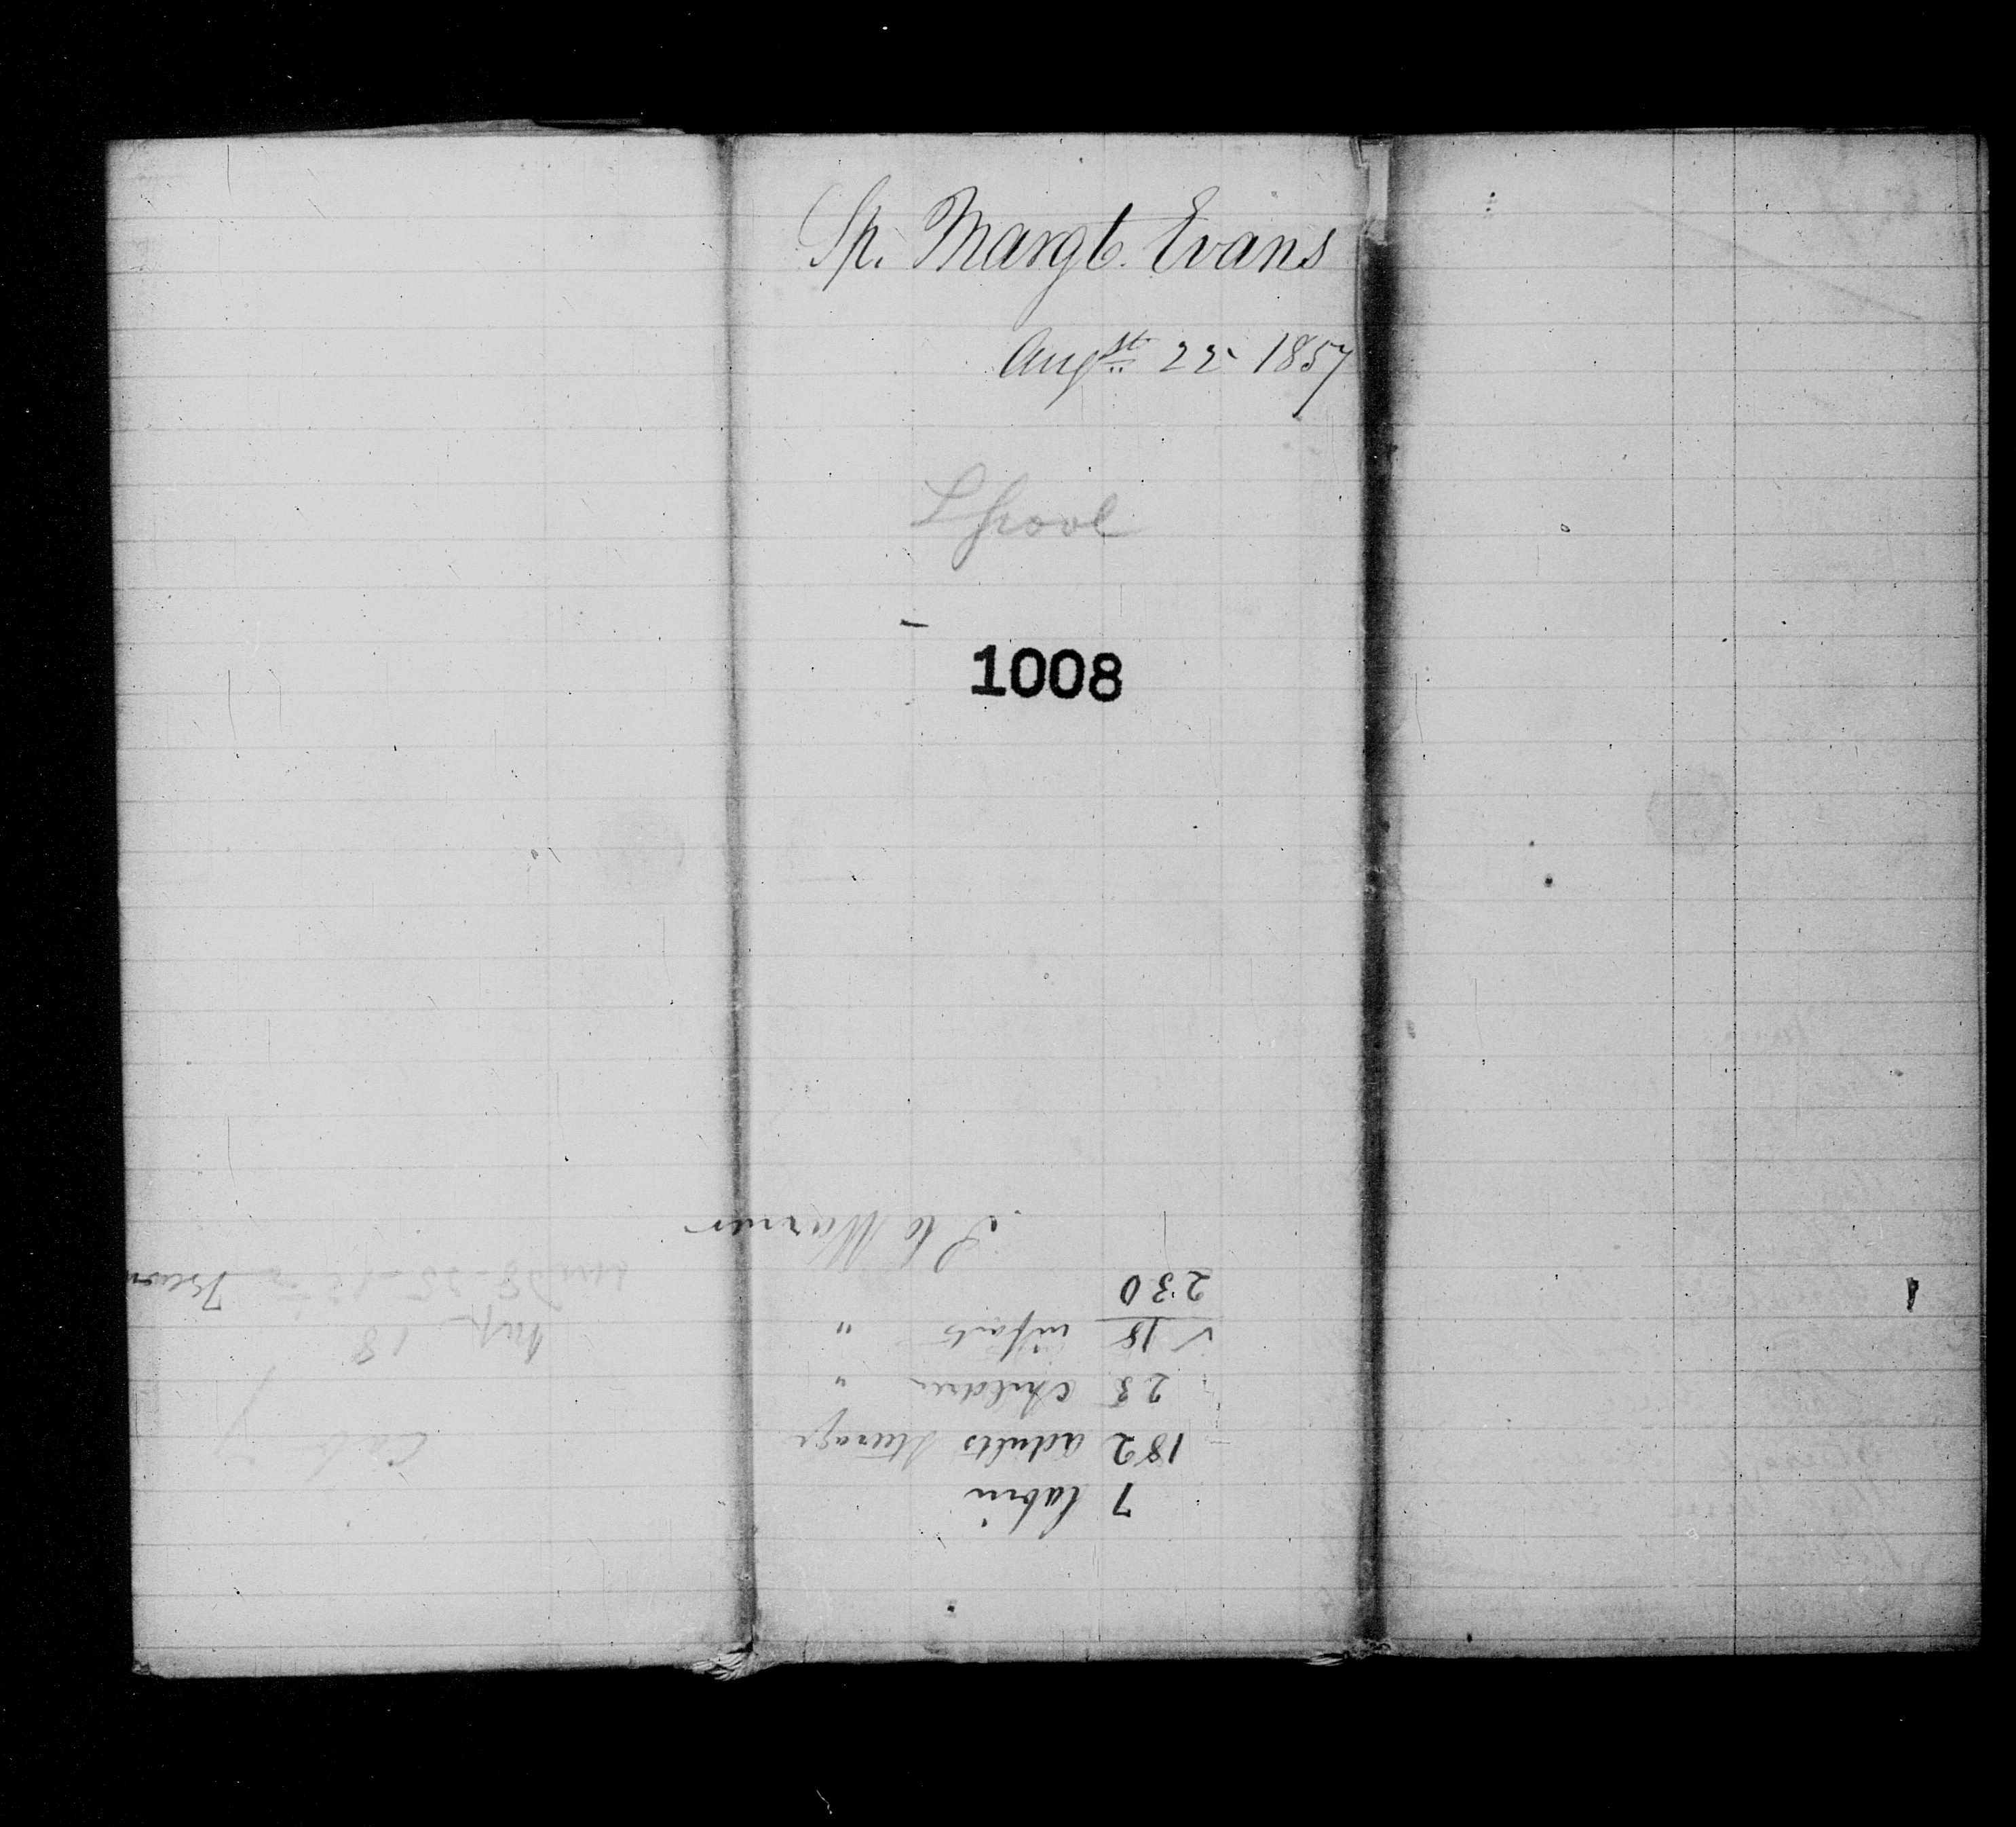 Sp. Margt. Evans
Augst 22 1857
Lpool
1008
7 Cabin
182 adults Steerage
23 children "
18 infants "
230
Warner
Cab 7
Inf 18